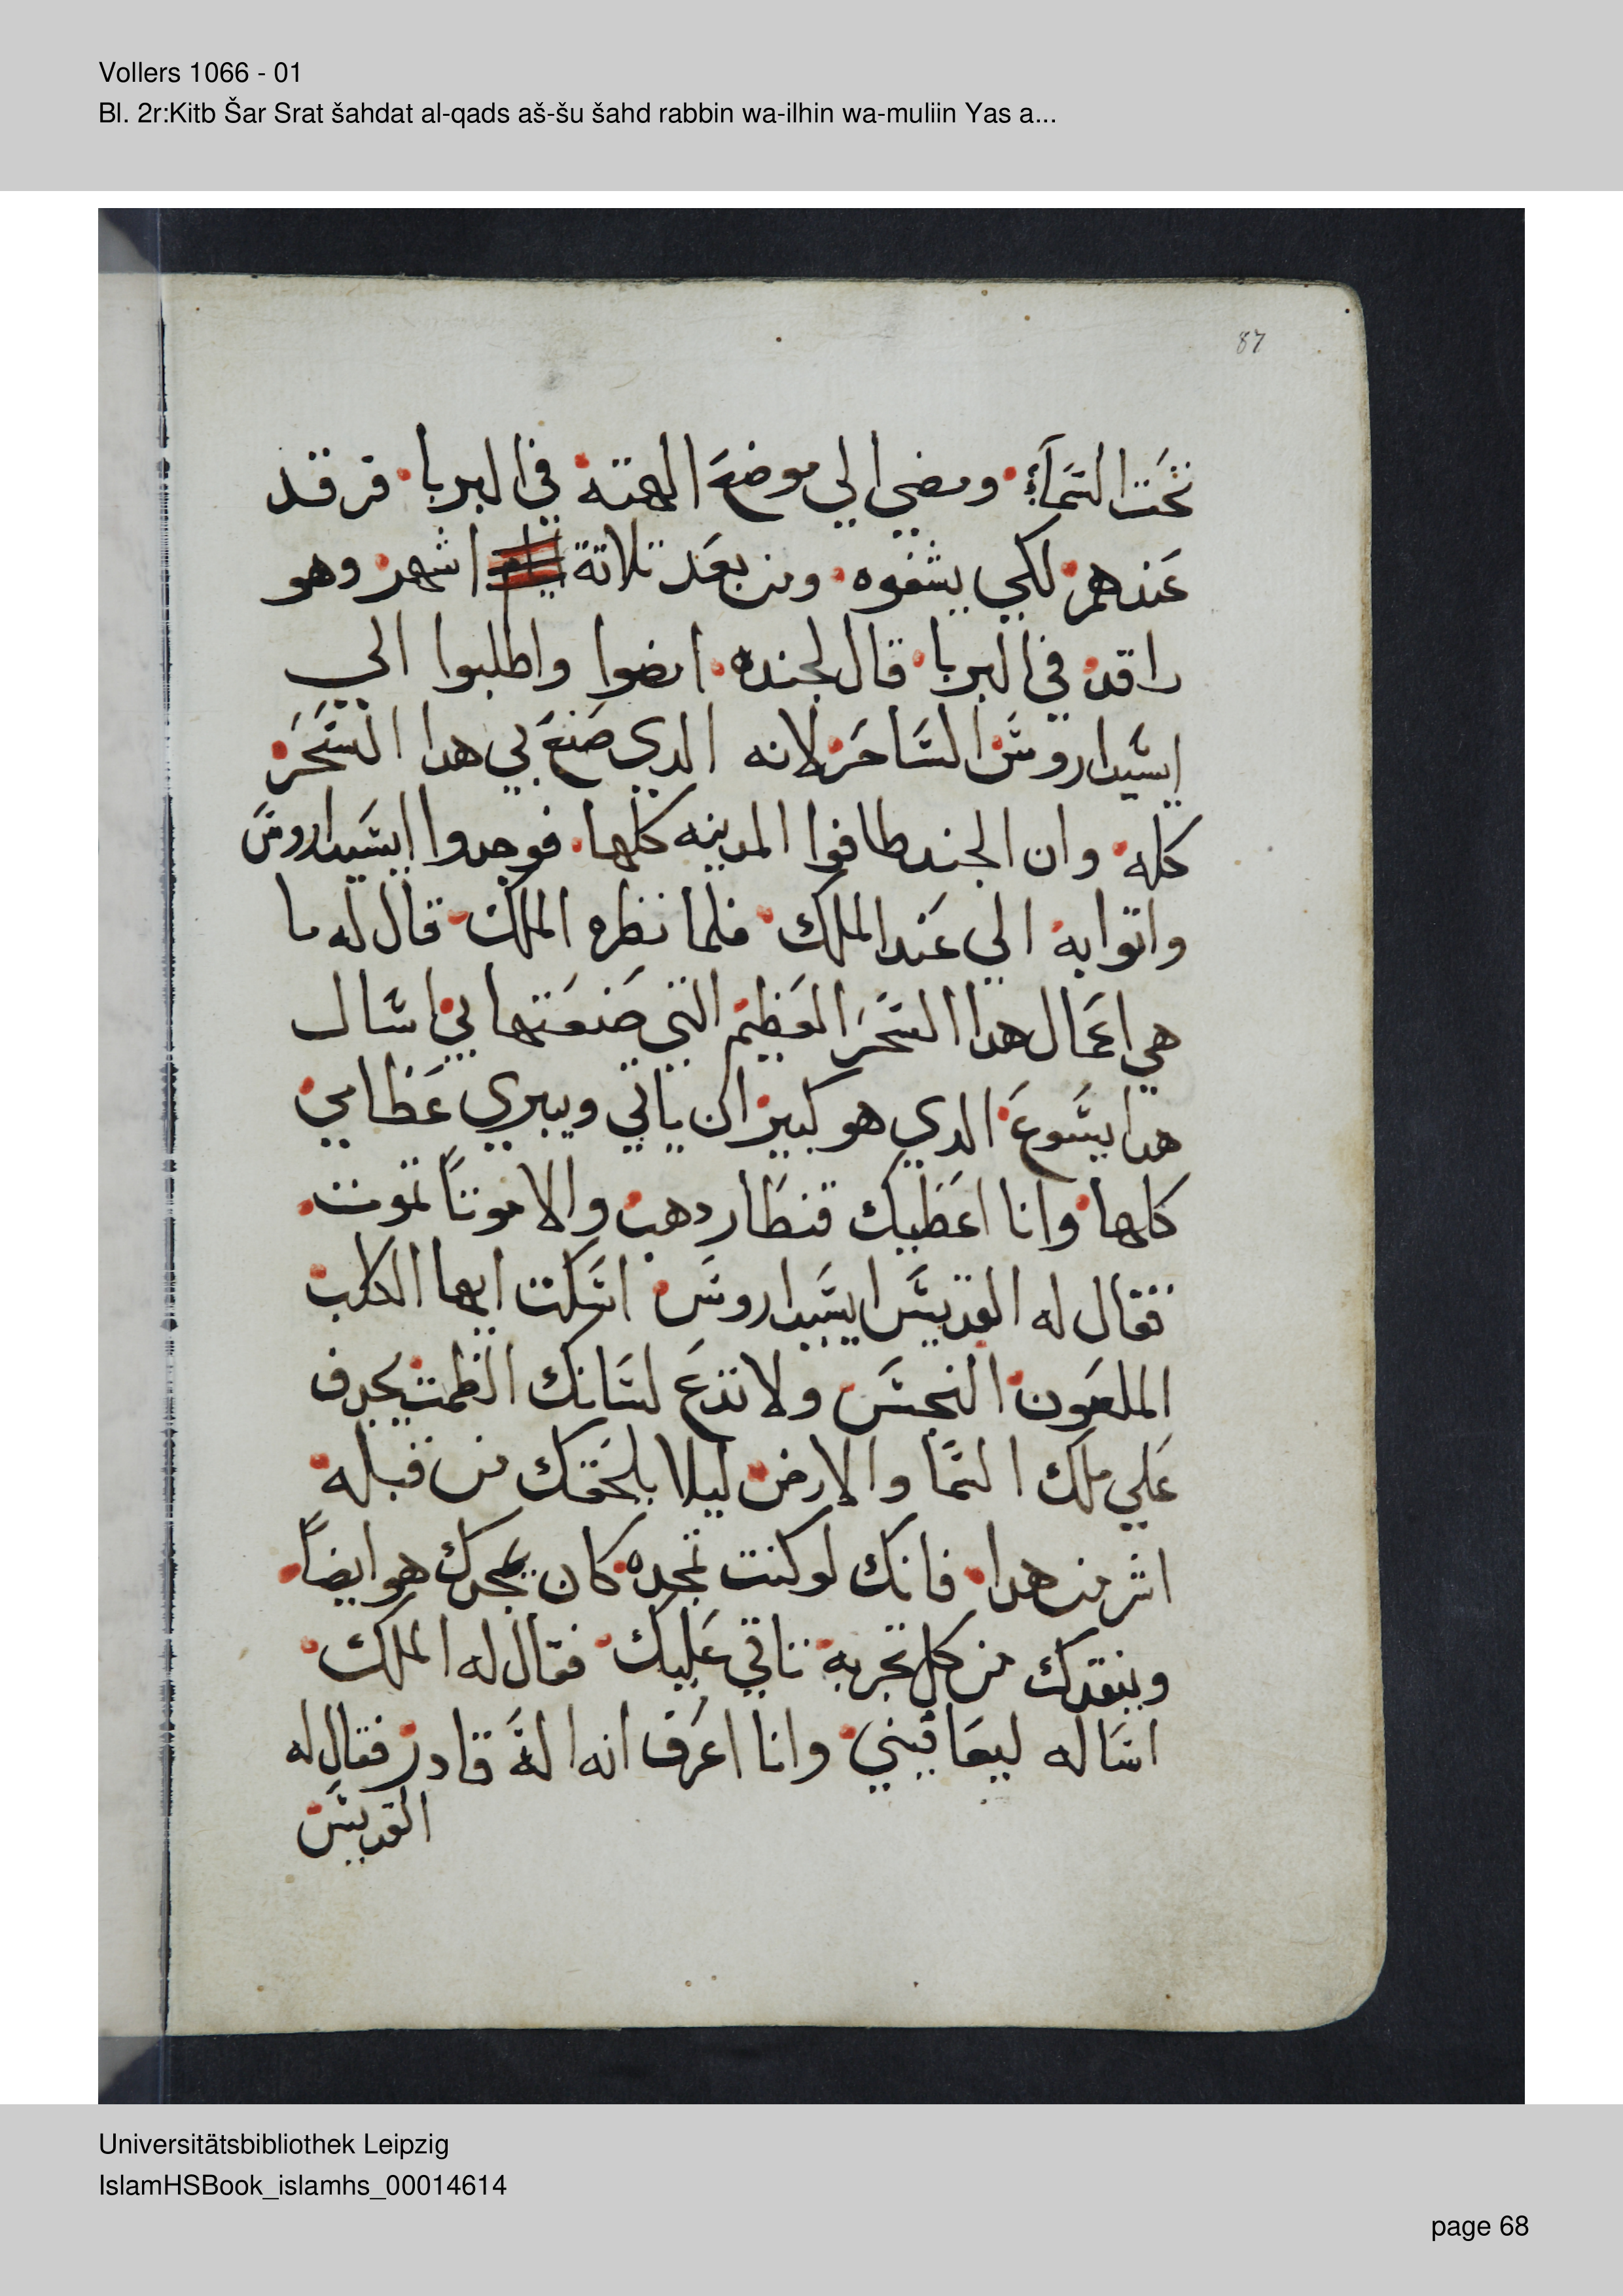 Vollers 1066 - 01
Bl. 2r:Kitb Šar Srat šahdat al-qads aš-šu šahd rabbin wa-ilhin wa-muliin Yas a...
87
تحت السَمآء ومضي الي موضع الهته في البربا فرقد
عَندهم لكي يشفوه ومن بعَد تلاتة اشهر وهو
راقد في البربا قال لجنده امضوا واطلبوا الي
ايسَيداروسَ السَاحَر لانه الدي صَنعَ بي هدا السَحَر
كله وان الجند طافوا المدينه كلها فوجدوا ايسَيداروسَ
واتوا به الي عَند الملك فلما نظره الملك قال له ما
هي اعَمال هدا السَحَر العَظيم التي صَنعَتها بي اسَال
هدا يسَوعَ الدي هو كبير ان ياتي ويبري عَظامي
كلها وانا اعَطيك قنطار دهب والا موتاً تموت
فقال له القديسَ ايسَيداروسَ اسَكت ايها الكلب
الملعَون النجسَ ولا تدعَ لسَانك الظمت يجدف
عَلي ملك السَما والارض ليلا يلحَقك من قبله
اشر من هدا فانك لو كنت تمجده كان يمجدك هو ايضاً
وينقدك من كل تجربه تاتي عَليك فقال له الملك
اسَاله ليعَافيني وانا اعَرف انه الهَ قادر فقال له
القديسَ
Universitätsbibliothek Leipzig
IslamHSBook_islamhs_00014614
page 68